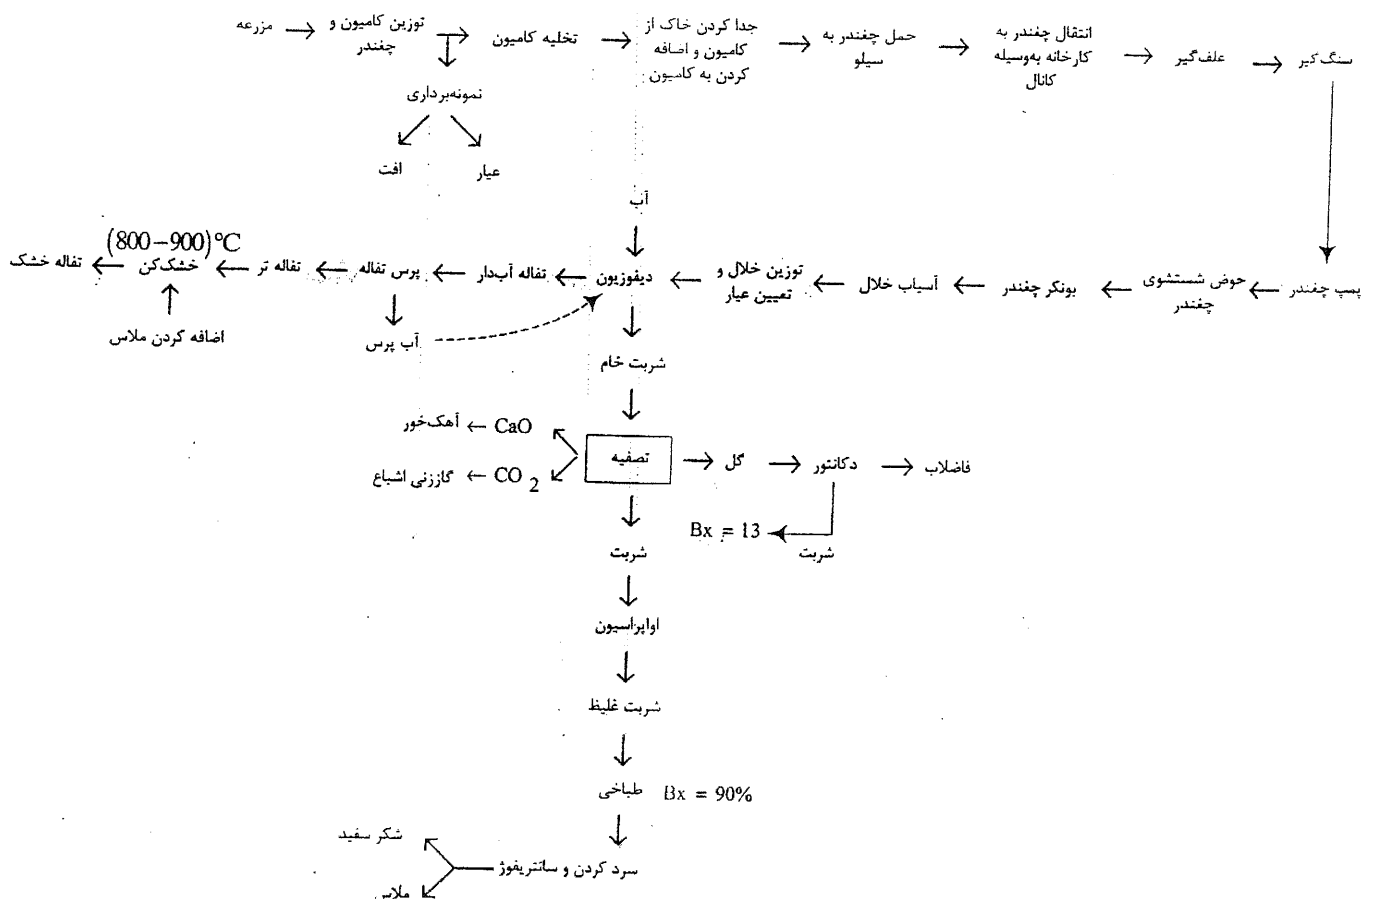 مزرعه
توزین کامیون و
چغندر
تخلیه کامیون
جدا کردن خاک از
کامیون و اضافه
کردن به کامیون
حمل چغندر به
سیلو
انتقال چغندر به
کارخانه به‌وسیله
کانال
علف‌گیر
سنگ‌گیر
نمونه‌برداری
افت
عیار
آب
پمپ چغندر
حوض شستشوی
چغندر
بونکر چغندر
آسیاب خلال
توزین خلال و
تعیین عیار
دیفوزیون
تفاله آب‌دار
پرس تفاله
تفاله تر
(800–900)°C
خشک‌کن
تفاله خشک
اضافه کردن ملاس
آب پرس
شربت خام
تصفیه
CaO
آهک‌خور
CO2
گاززنی اشباع
گل
دکانتور
فاضلاب
Bx = 13
شربت
شربت
اواپراسیون
شربت غلیظ
طباخی
Bx = 90%
سرد کردن و سانتریفوژ
شکر سفید
ملاس